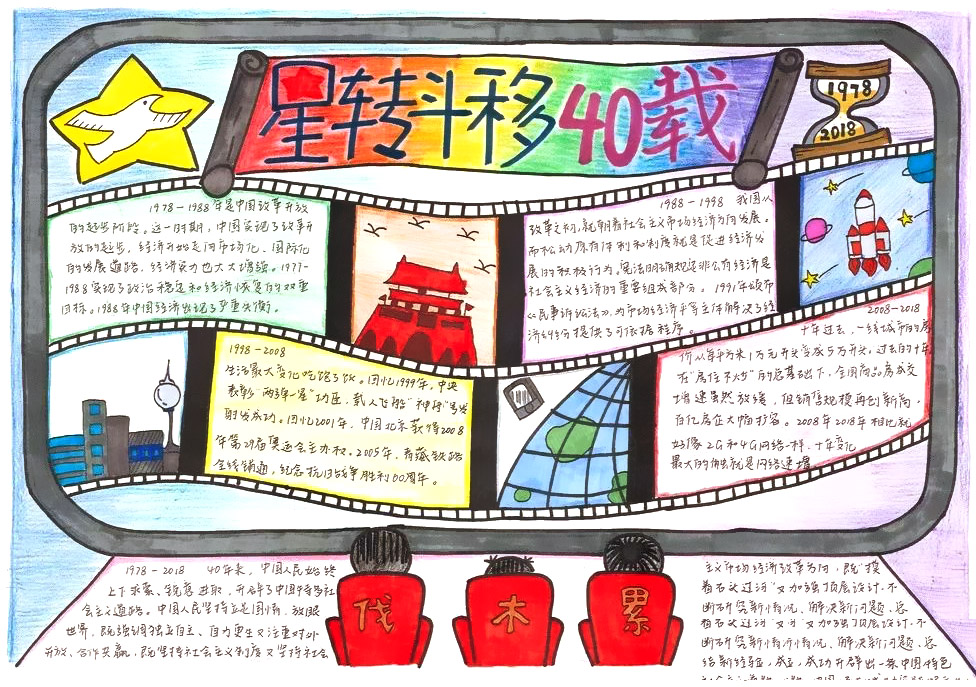 星转斗移40载
1978
2018
1978-1988年是中国改革开放
的起步阶段。这一时期，中国实现了改革开
放的起步，经济开始走向市场化、国际化
的发展道路，经济实力也大大增强。1977-
1988实现了政治稳定和经济恢复的双重
目标。1988年中国经济出现了严重失衡。
1988-1998 我国从
改革之初，就朝着社会主义市场经济方向发展。
而松动原有体制和制度就是促进经济发
展的积极行为，宪法明确规定非公有经济是
社会主义经济的重要组成部分。1991年颁布
《民事诉讼法》，为市场经济平等主体解决了经
济纠纷提供了可依据程序。
1998-2008
生活最大变化吃饱了饭。回忆1999年，中央
表彰"两弹一星"功臣，载人飞船"神舟"号发
射发成功。回忆2001年，中国北京获得2008
年第29届奥运会主办权。2005年，青藏铁路
全线铺通，纪念抗日战争胜利60周年。
2008-2018
十年过去，一线城市的房
价从每平方米1万元开头变成5万开头，过去的十年
在"房住不炒"的总基础下，全国商品房成交
增速虽然放缓，但销售规模再创新高，
百亿房企大幅扩容。2008年2018年相比就
好像2G和4G网络一样，十年变化
最大的无疑就是网络速增。
1978-2018 40年来，中国人民始终
上下求索、锐意进取，开辟了中国特色社
会主义道路。中国人民坚持立足国情、放眼
世界，既强调独立自主、自力更生又注重对外
开放、合作共赢，既坚持社会主义制度又坚持社会
伐
木
累
主义市场经济改革方向，既"摸
着石头过河"又加强顶层设计，不
断研究新情况、解决新问题、总
着石头过河"又才"又加强顶层设计，不
断研究新情济情况、解决新问题、总
结新经验，成立，成功开辟出一条中国特色